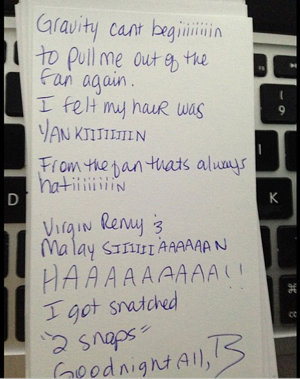 Gravity cant begiiiiiiin
to pull me out of the
fan again.
I felt my hair was
YANKIIIIIIIN
From the fan thats always
hatiiiiiiiN
Virgin Remy &
Malay SIIIIIIAAAAAAN
HAAAAAAAAA!!
I got snatched
"2 snaps"
Goodnight All, B
D
(
9
I
K
⌘